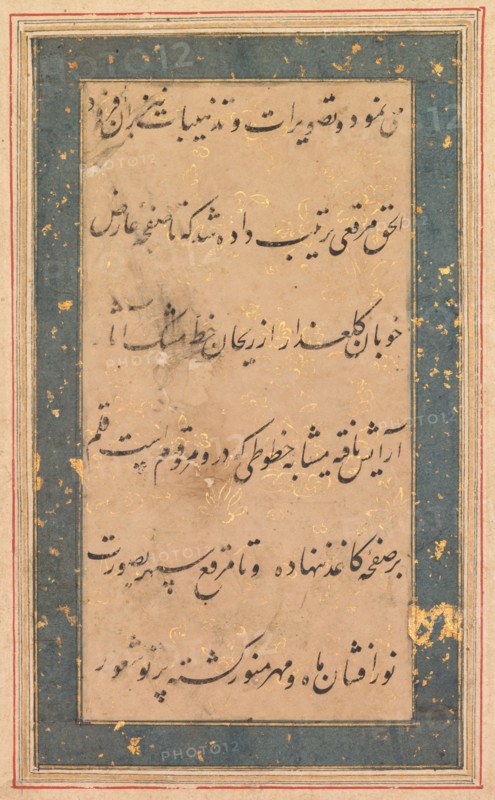 می نمود و تصویرات و تذهیبات نیز بران افزود
الحق مرقعی ترتیب داده شد که تا صفحهٔ عارض
خوبان گلعذار از ریحان خط مشک آثار
آرایش یافته مشابه خطوطی که در و مرقوم است قلم
بر صفحهٔ کاغذ ننهاده و تا مرقع سپهر بصورت
نور افشان ماه و مهر منور گشته پرتو شعور
PHOTO12